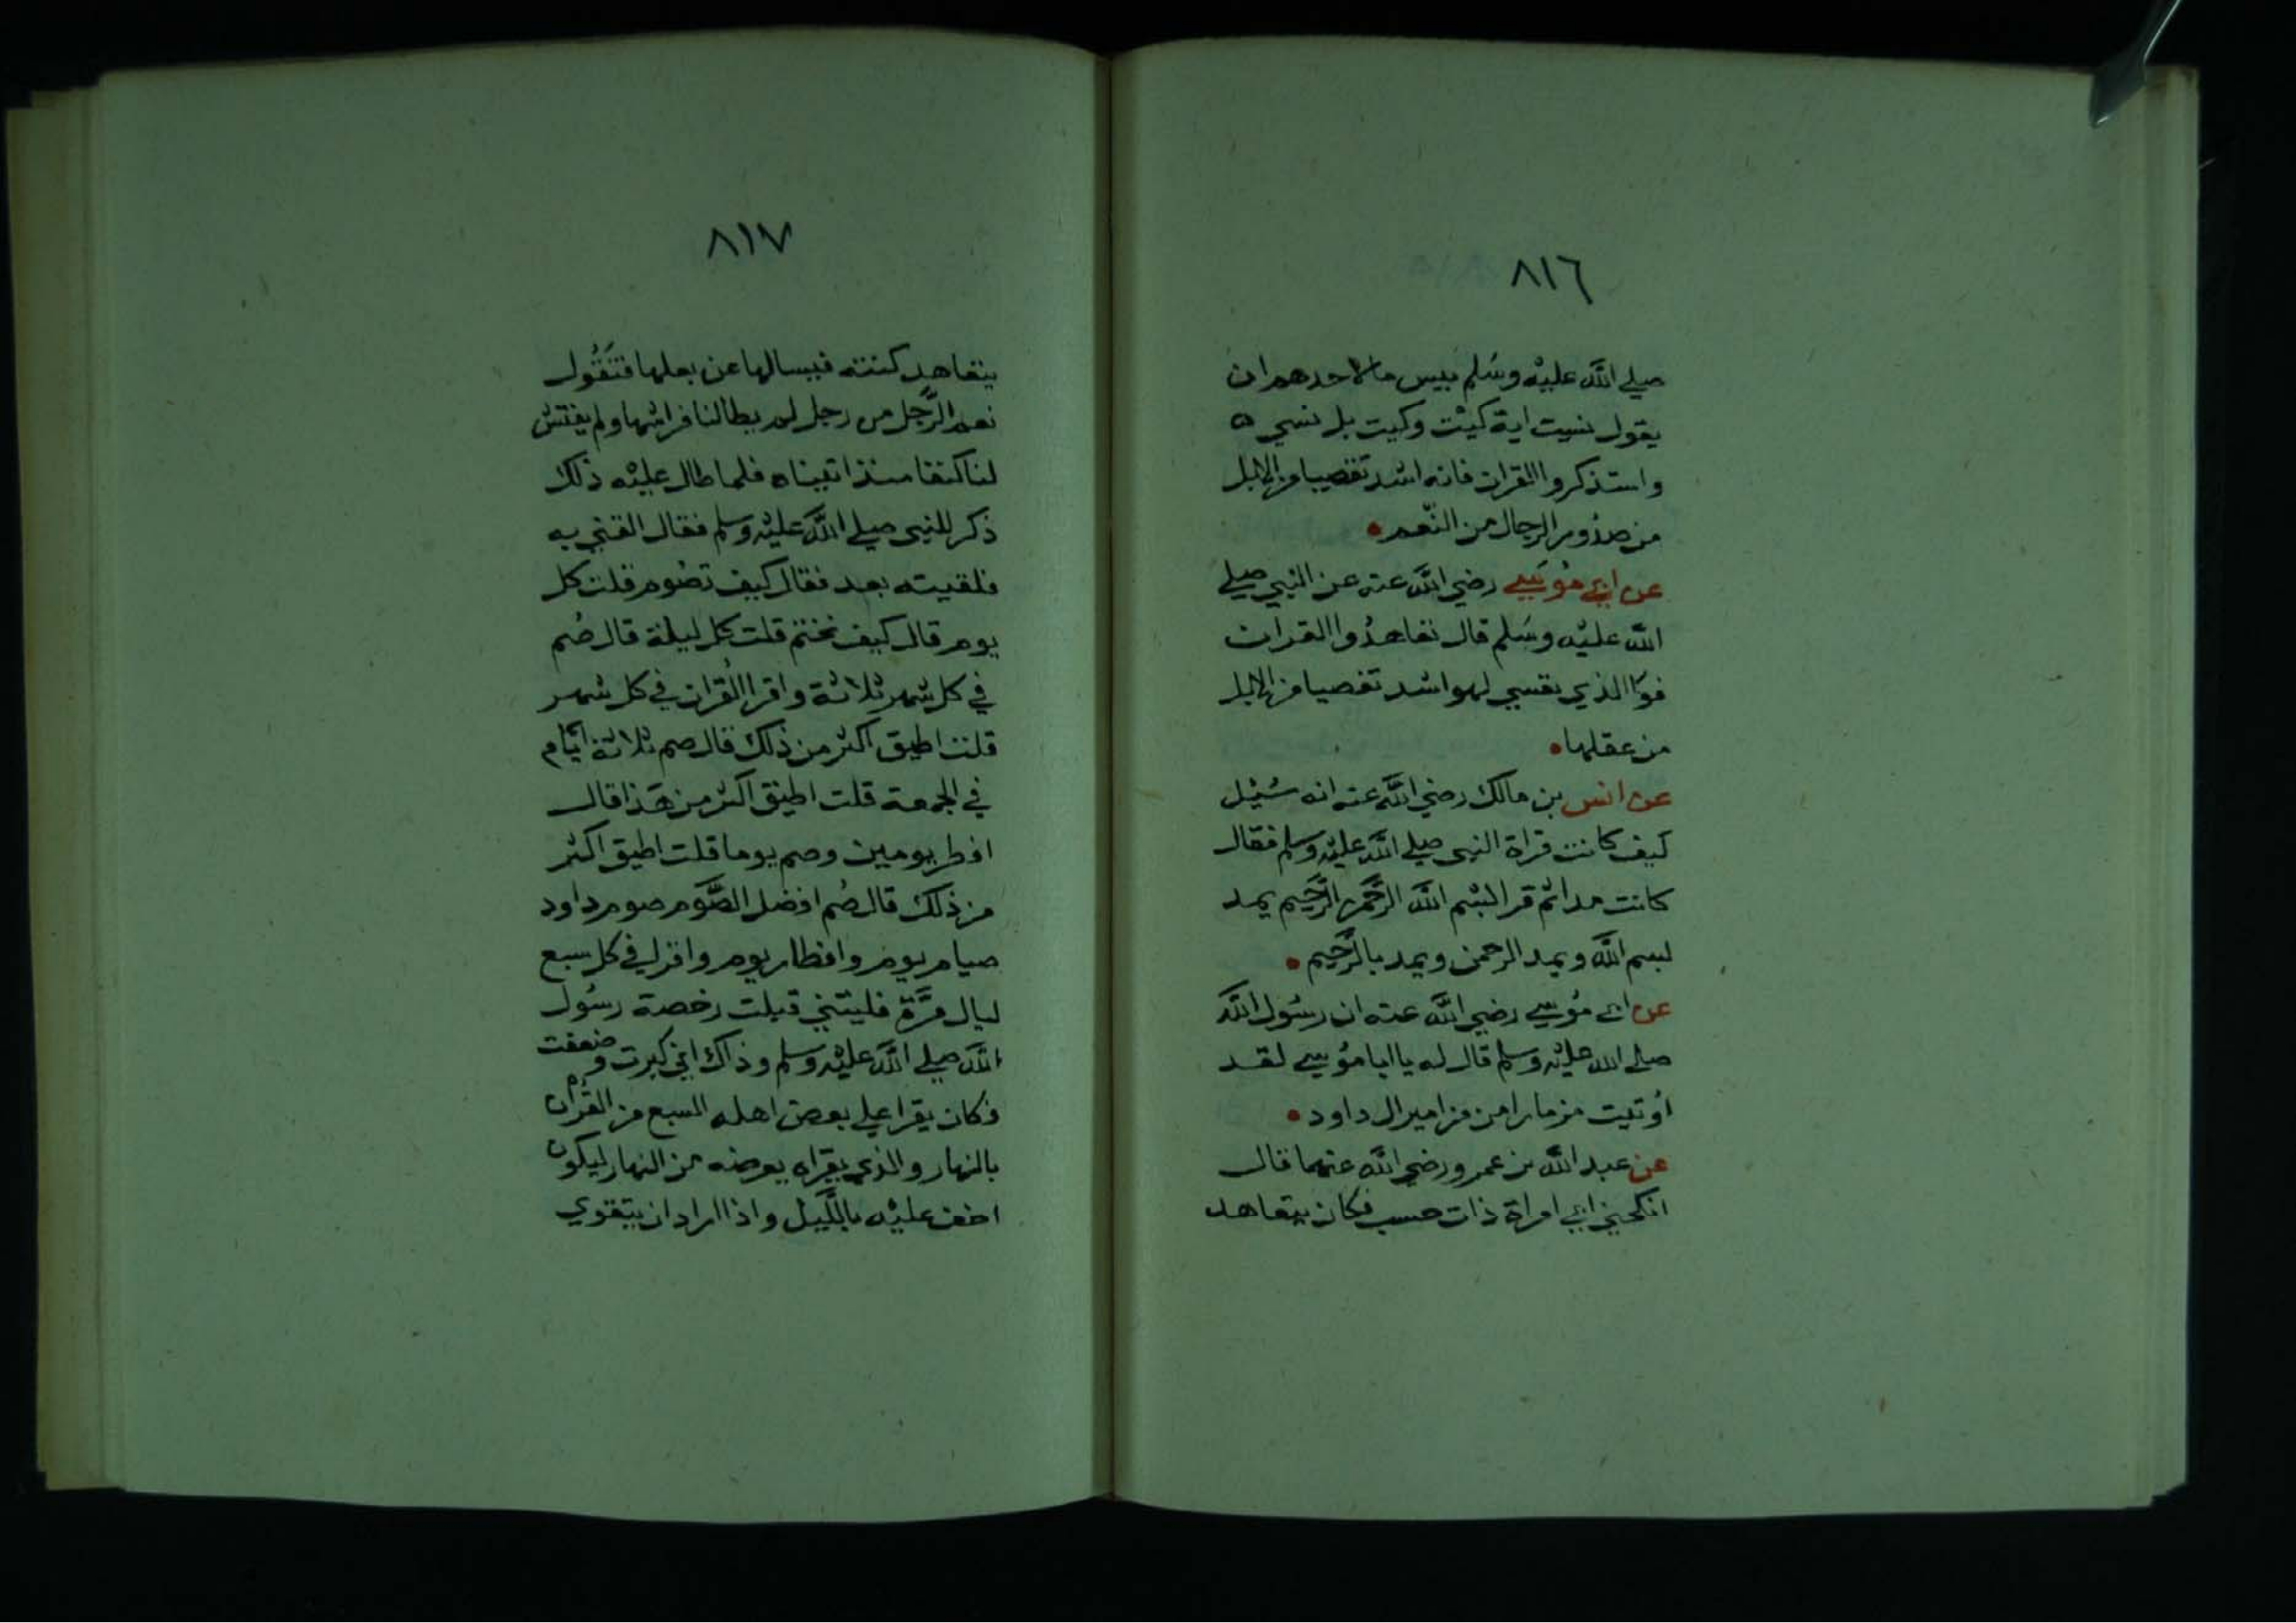 ٨١٦
صلي اللّه عليْه وسَلم بيس ما لاحدهم ان
يقول نسيت اية كيْت وكيت بل نسي ه
واستذكروا القران فانه اشد تفصيا من الابل
من صدُوم الرجال من النّعم
عن ابي مُوسَي رضي اللّه عنه عن النبي صلي
اللّه عليْه وسَلم قال تعاهدُوا القران
فوَا الذي نفسي لهو اشد تفصيا من الابل
من عقلها
عن انس بن مالك رضي اللّه عنه انه سُيْل
كيف كانت قراة النبي صلي اللّه عليْه وسلم فقال
كانت مدا ثم قرا لبسْم اللّه الرّحمن الرّحيم يمد
لبسم اللّه ويمد الرحمن ويمد بالرّحيم
عن ابي مُوسي رضي اللّه عنه ان رسُول اللّه
صلي الله عليْه وسلم قال له يا ابا مُوسي لقد
اُوتيت مزمارا من مزامير ال داود
عن عبد اللّه بن عمرو رضي اللّه عنهما قال
انكحني ابي امراة ذات حسب فكان يتعاهد
٨١٧
يتعاهد كنته فيسالها عن بعلها فتَقُول
نعم الرّجل من رجل لم يطا لنا فراشها ولم يفتش
لنا كنفا منذ اتيناه فلما طال عليْه ذلك
ذكر للنبي صلي اللّه عليْه وسلم فقال القني به
فلقيته بعد فقال كيف تصُوم قلت كل
يوم قال كيف تختم قلت كل ليلة قال صُم
في كل شهر ثلاثة واقرا القُران في كل شهر
قلت اطيق اكثر من ذلك قال صم ثلاثة ايّام
في الجمعة قلت اطيق اكثر من هَذا قال
افطر يومين وصم يوما قلت اطيق اكثر
من ذلك قال صُم افضل الصّوم صوم داود
صيام يوم وافطار يوم واقرا في كل سبع
ليال مَرّة فليتني قبلت رخصة رسُول
اللّه صلي اللّه عليْه وسلم وذاك اني كبرت وضعفت
فكان يقرا علي بعض اهله السبع من القُران
بالنهار والذي يقراه يعرضه من النهار ليكون
اخف عليْه باللّيل واذا اراد ان يتقوي